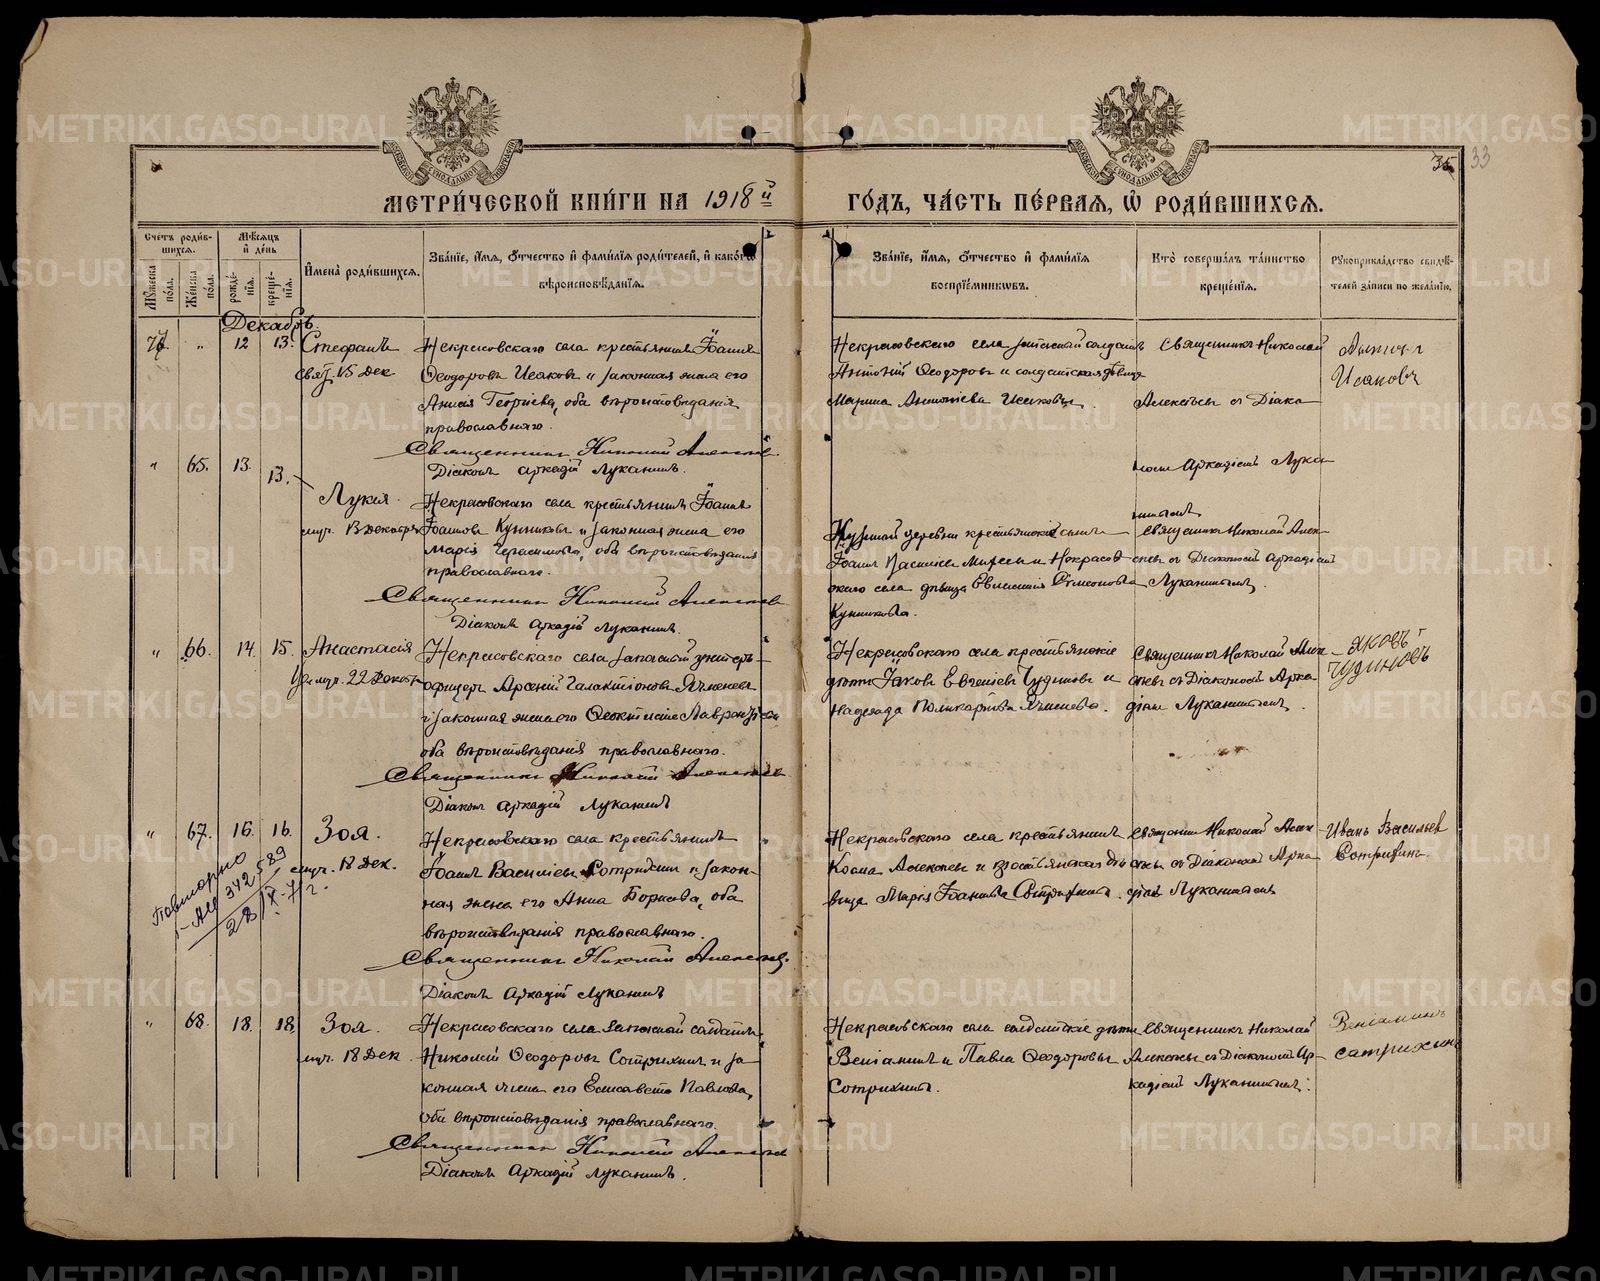 МЕТРИ́ЧЕСКОЙ КНИ́ГИ НА 1918й
ГО́ДЪ, ЧА́СТЬ ПЕ́РВАЯ, Ѡ РОДИ́ВШИХСЯ.
35 33
Счетъ роди́вшихся.
Мѣ́сяцъ и де́нь
Имена̀ роди́вшихся.
Зва́нїе, и́мя, о́тчество и фами́лїя роди́телей, и како́гѡ
вѣроисповѣ́данїя.
Зва́нїе, и́мя, о́тчество и фами́лїя
воспрїе́мникѡвъ.
Кто̀ соверша́лъ та́инство
креще́нїя.
Рукоприкла́дство свидѣ́-
телей за́писи по жела́нїю.
Му́жеска по́ла.
Же́нска по́ла.
рожде́нїя.
креще́нїя.
Декабрь.
„ 12 13. Стефанъ
свящ. 15 Дек
Некрасовскаго села крестьянинъ Іоаннъ
Ѳеодоровъ Исаковъ и законная жена его
Анисія Георгіева, оба вѣроисповѣданія
православнаго.
Священникъ Николай Алексѣев
Діаконъ Аркадій Луканинъ.
Некрасовскаго села
Антоній Ѳеодоровъ и солдатская дѣвица
Марина Антоніева Исакова.
Священникъ Николай
Алексѣевъ с Діако
номъ Аркадіемъ Лука
нинымъ
Исаковъ
„ 65. 13. 13. Лукія.
муч. 13 декабря
Некрасовскаго села крестьянинъ Іоаннъ
Іоанновъ Кунниковъ и законная жена его
Марія Герасимова, оба вѣроисповѣданія
православнаго.
Священникъ Николай Алексѣев
Діаконъ Аркадій Луканинъ.
деревни крестьянскій сынъ
Іоаннъ Василіевъ и Некрасов
скаго села дѣвица Симеонова
Кунникова.
Священникъ Николай Алек-
сѣевъ с Діакономъ Аркадіемъ
Луканинымъ.
„ 66. 14. 15. Анастасія
муч. 22 Декабр
Некрасовскаго села запасный унтеръ-
офицеръ Арсеній Галактіоновъ Ячменевъ
и законная жена его Ѳеоктиста
оба вѣроисповѣданія православнаго.
Священникъ Николай Алексѣев
Діаконъ Аркадій Луканинъ
Некрасовскаго села крестьянскіе
дѣти Іаковъ Евгеніевъ Чудиновъ и
Надежда Поликарпова Ячменева.
Священникъ Николай Алек
сѣевъ с Діакономъ Арка
діемъ Луканинымъ.
Яковъ
Чудиновъ
„ 67. 16. 16. Зоя.
муч. 18 Дек.
Повторно
342589
Некрасовскаго села крестьянинъ
Іоаннъ Василіевъ Сотрихинъ и закон-
ная жена его Анна Борисова, оба
вѣроисповѣданія православнаго.
Священникъ Николай Алексѣев.
Діаконъ Аркадій Луканинъ
Некрасовскаго села крестьянинъ
Косма Алексѣевъ и крестьянская дѣ
вица Марія Іоаннова Сотрихина.
Священникъ Николай Алек
сѣевъ с Діакономъ Арка
діемъ Луканинымъ
Иванъ Васильев
Сотрихинъ.
„ 68. 18. 18. Зоя.
муч. 18 Дек
Некрасовскаго села запасный солдатъ
Николай Ѳеодоровъ Сотрихинъ и за
конная жена его Елисавета Павлова,
оба вѣроисповѣданія православнаго.
Священникъ Николай Алексѣев
Діаконъ Аркадій Луканинъ.
Некрасовскаго села солдатскіе дѣти
Веніаминъ и Павла Ѳеодоровы
Сотрихины.
Священникъ Николай
Алексѣевъ с Діакономъ Ар-
кадіемъ Луканинымъ.
Веніаминъ
сатрихинъ
METRIKI.GASO-URAL.RU